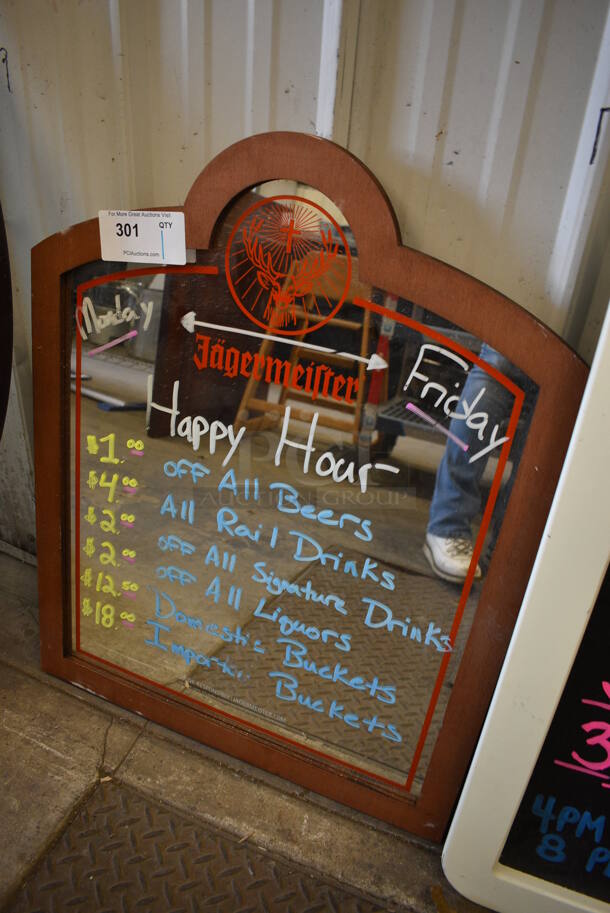 For More Great Auctions Visit
301 QTY
PCIAuctions.com
Jägermeister
Monday Friday
Happy Hour
$1.00 OFF All Beers
$4.00 All Rail Drinks
$2.00 OFF All Signature Drinks
$2.00 OFF All Liquors
$12.00 Domestic Buckets
$18.00 Import Buckets
AUCTION GROUP
3
4PM
8 P